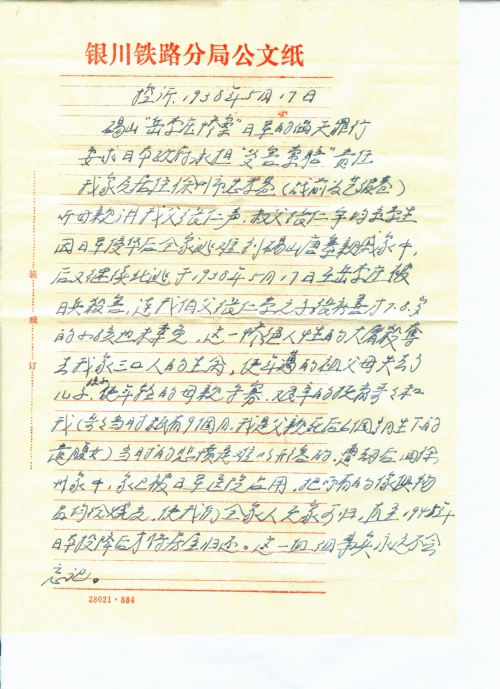 银川铁路分局公文纸
控诉.1938年5月17日
砀山"岳李庄惨案"日军的滔天罪行
要求日本政府承担"受害索赔"责任
我家是居住徐州市
听母亲讲我父张仁声、叔父张仁宇均系学生
因日军侵华后全家逃难到砀山唐寨亲戚家中,
后又继续北逃于1938年5月17日在岳李庄被
日兵杀害,连我伯父张仁孝之子张新喜才7.8岁
的小孩也未幸免,这一惨绝人性的大屠杀夺
去我家三口人的生命,使年迈的祖父母失去了
儿子、孙子,使年轻的母亲守寡,艰辛的抚育哥哥和
我(哥哥当时祗有9个月.我是父亲死后6个月生下的
遗腹女)当时的悲愤是难以形容的,遭劫后回徐
州家中,家已被日军医院占用,把所有的家俱物
品均给烧光,使我们全家人无家可归,直至1945年
日军投降后才将房屋归还。这一血泪事实永远不会
忘记。
装
线
订
28021·884